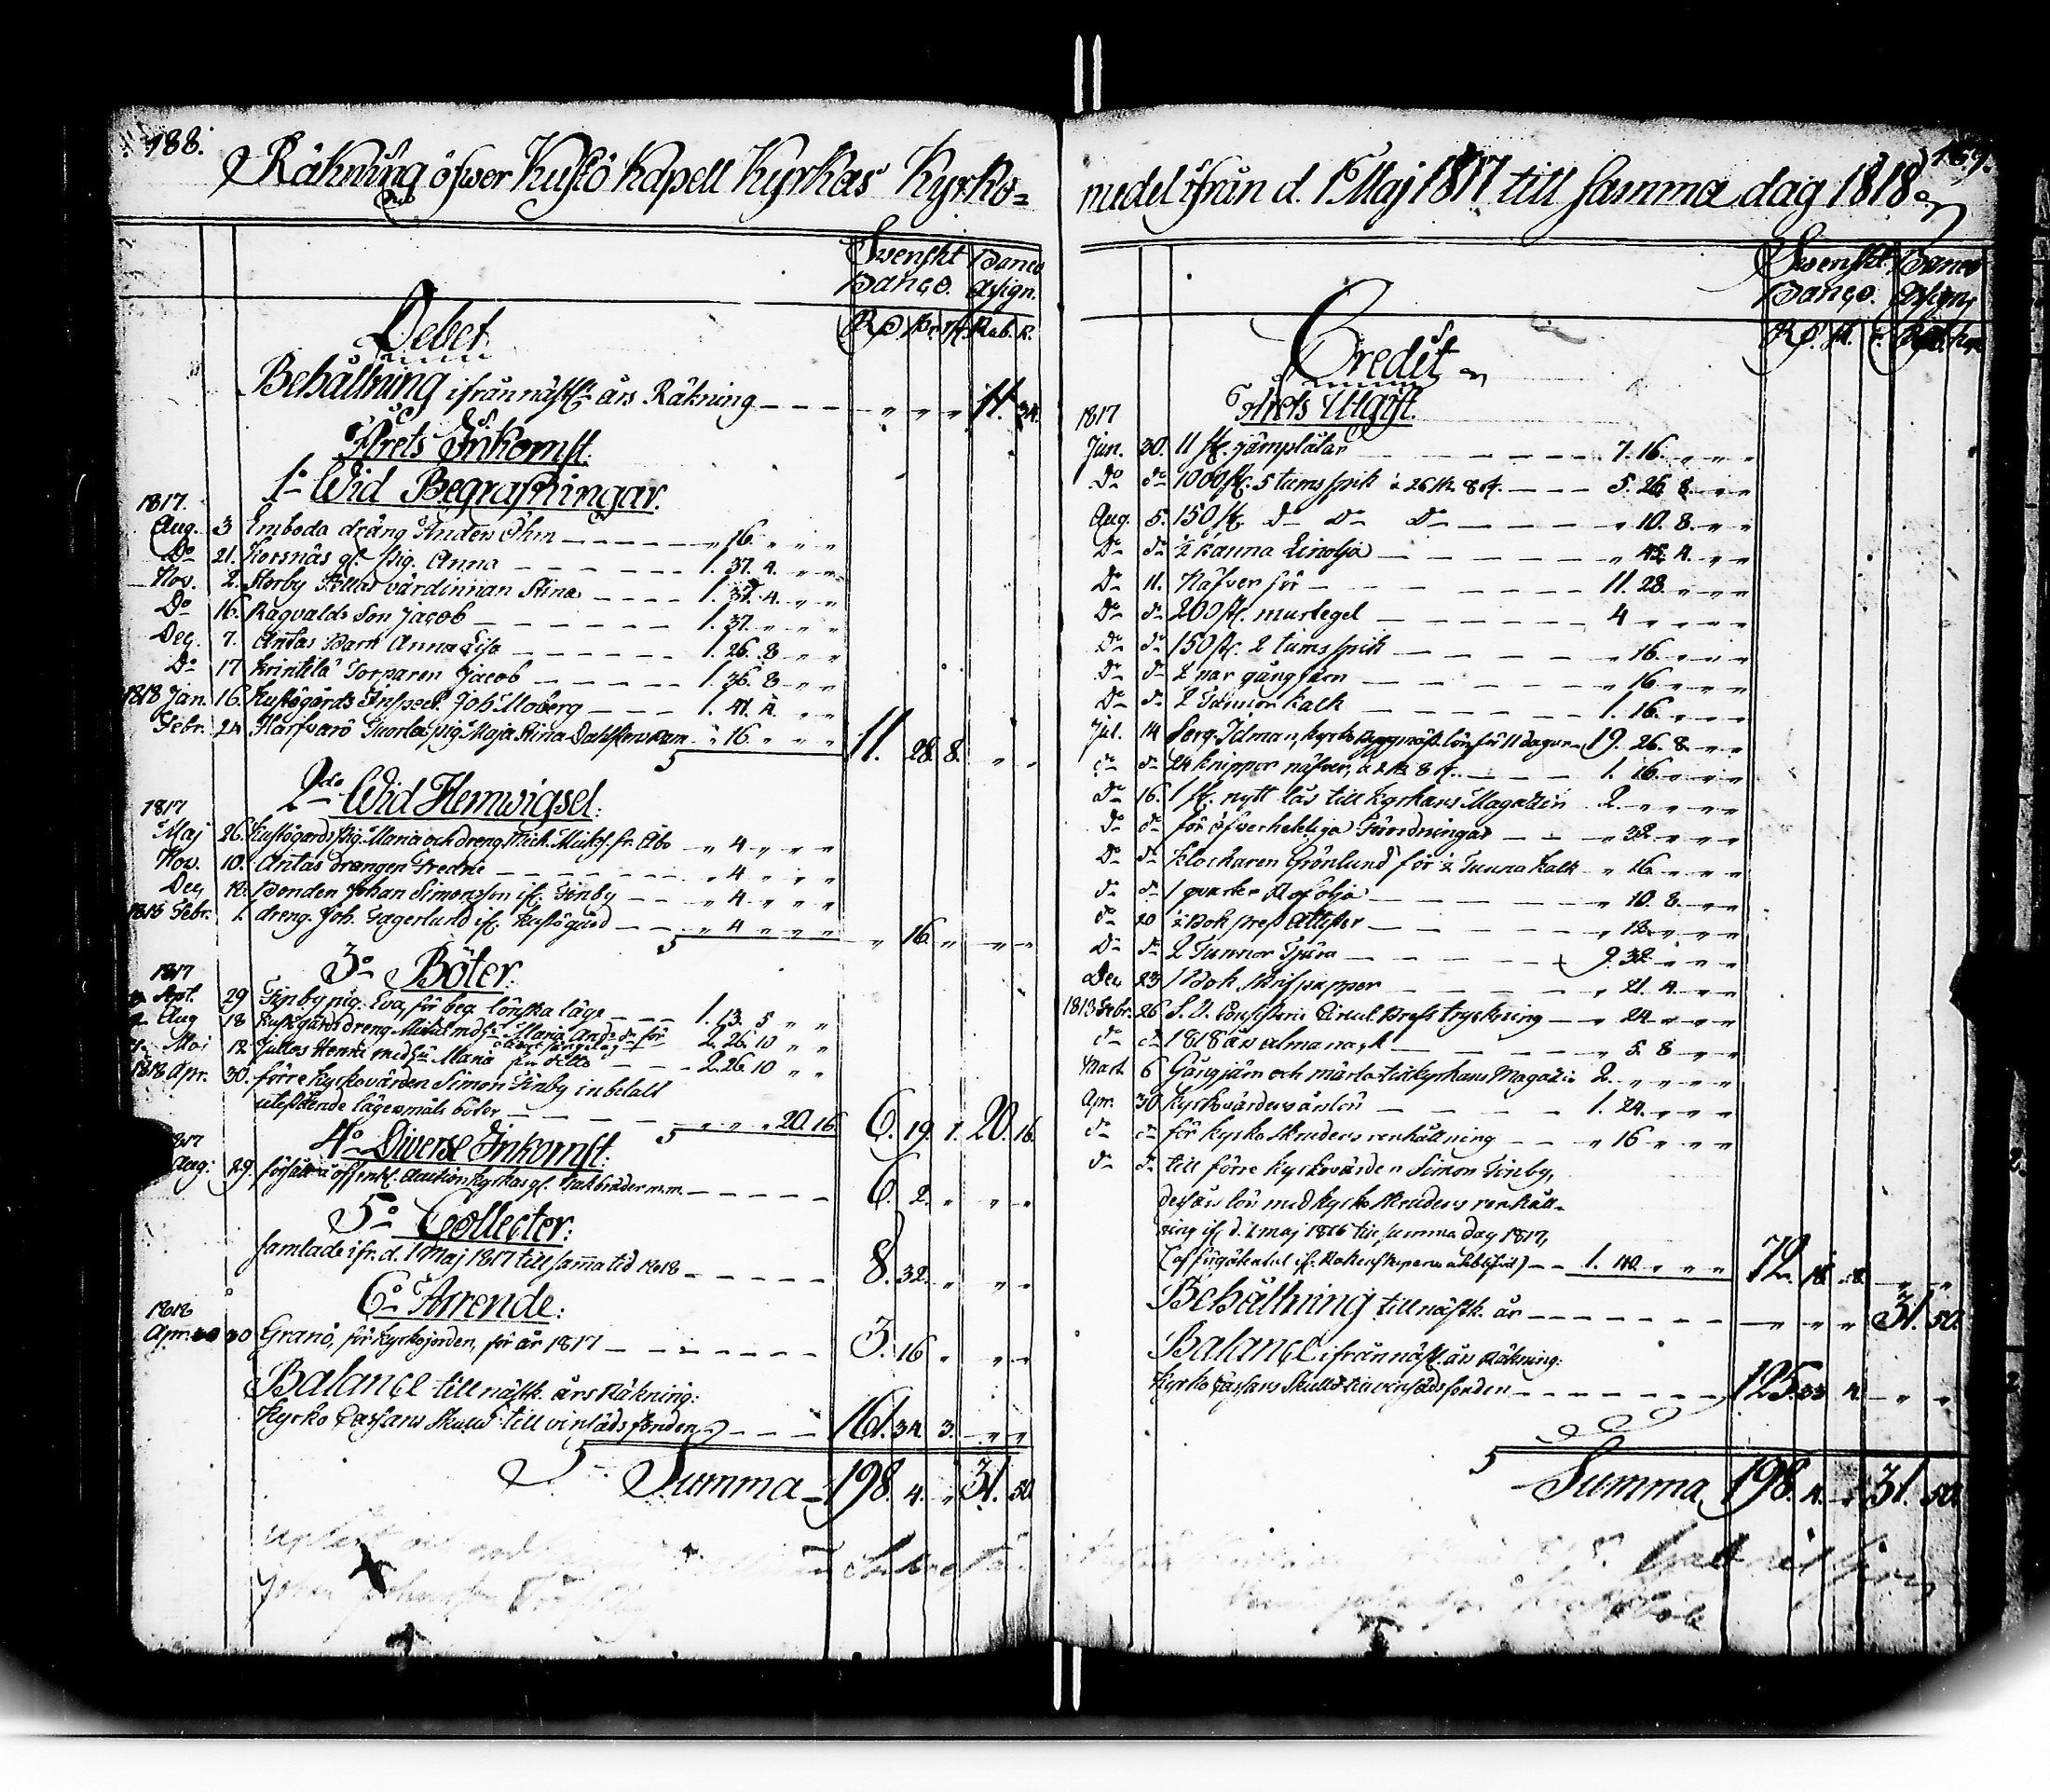 188.
Räkning öfwer Kustö Kapell Kyrkas Kyrko=
Swenskt Banco
Banco. Assign.
Rd sk. rst. Rub. k.
Debet
Behållning ifrån nästl. års Räkning — — — „ „ „ 11. 34.
Årets Inkomst.
1o Wid Begrafningar.
1817.
Aug. 3 Emboda dräng Anders Öhm — — — „ 16. „ „ „
Do 21. Korsnäs gl. pig. Anna — — — 1. 37. 4. „ „
Nov. 2. Storby värdinnan Stina — — — 1. 37. 4. „ „
Do 16. Ragvalds Son Jacob — — — 1. 37. „ „ „
Dec. 7. Antas Barn Anna Lisa — — — 1. 26. 8 „ „
Do 17 Krintilä Torparen Jacob — — — 1. 36. 8 „ „
1818 Jan. 16. Kustögårds Inspect. Joh. Moberg — — — 1. 41. 4. „ „
Febr. 24 Harfvarö Tuorla pig. Maja Stina — „ 16. „ „ „ 11. 28. 8. „ „
2do Wid Hemwigsel:
1817
Maj 26. Kustögårds Pig. Maria och dreng Mich. fr. Åbo „ 4 „ „ „
Nov. 10. Antas drengen Fredric — — — „ 4 „ „ „
Dec. 12. Bonden Johan Simonsson if. Finby — — „ 4 „ „ „
1818 Febr. 1. dreng. Joh. Fagerlund if. Kustögård — — „ 4 „ „ „ „ 16. „ „ „
3o Böter:
1817
Apl. 29 Finby pig. Eva, för beg. lönska läge — — 1. 13. 5 „ „
Aug 18 Kustögårds dreng för 2. 26. 10 „ „
Maj 12 Jullas Henric med Maria för detto — — 2. 26. 10 „ „
1818 Apr. 30. förre Kyrkovärden Simon Finby inbetalt
utestående lägersmåls böter — — — „ „ „ 20. 16 6. 19. 1. 20. 16.
4o Diverse Inkomst:
1817
Aug: 29. försålt å offentl. Auction Kyrkas gl. takbräder m.m. — — — 6. 2. „ „ „
5o Collecter:
samlade ifr. d. 1 Maj 1817 till samma tid 1818 — — — 8. 32. „ „ „
6o Arrende:
1818
Apr. 30 Granö, för Kyrkojorden, för år 1817 — — — 3. 16 „ „ „
Balance till nästk. års Räkning:
Kyrko Cassans Skuld till vinsäds fonden — — — 161. 34 3. „ „
Summa 198. 4. „ 31. 50
189.
medel ifrån d. 1 Maj 1817 till samma dag 1818
Swenskt Banco
Banco. Assign.
Credit
Årets Utgift.
1817
Jun. 30. 11 st. järnplåtar — — — 7. 16. „ „ „
Do do 1000 st. 5 tums spik à 26 sk. 8 r. — — — 5. 26. 8. „ „
Aug. 5. 150 st. do do do — — — „ 10. 8. „ „
Do do ½ kanna Linolja — — — „ 45. 4. „ „
Do 11. Näfver för — — — 11. 28. „ „ „
Do do 200 st. murtegel — — — 4 „ „ „ „
Do do 150 st. 2 tums spik — — — „ 16. „ „ „
Do do 2 par gångjärn — — — „ 16 „ „ „
Do do 2 Tunnor kalk — — — 1. 16. „ „ „
Jul. 14 Serg. Idman, Kyrko byggmäst. lön för 11 dagar — 19. 26. 8. „ „
do do 24 knippor näfver, à 2 sk. 8 r. — — — 1. 16. „ „ „
Do 16. 1 st. nytt lås till Kyrkans Magazin 2. „ „ „ „
do do för öfverheteliga Förordningar — — „ 32 „ „ „
Do do Klockaren Grönlund för ½ Tunna kalk „ 16. „ „ „
do do 1 qvarter Rofolja — — — „ 10. 8. „ „
do 20 ½ Bok — — — „ 12. „ „ „
Do do 2 Tunnor Tjära — — — 9. 32 „ „ „
Dec 23 1 Bok Skrifpapper — — — „ 21. 4. „ „
1818 Febr. 26 S. V. Consistorii Circul. Brefs tryckning — „ 24. „ „ „
do do 1818 års almanach — — — „ 5. 8 „ „
Mart. 6 Gångjärn och märlor till kyrkans Magazin 2. „ „ „ „
Apr. 30 Kyrkovärdens årslön — — — 1. 24. „ „ „
do do för Kyrko Skrudens renhållning — — „ 16 „ „ „
do do till förre Kyrkovärden Simon Finby,
dess års lön med Kyrko Skrudens renhåll-
ning if. d. 1 maj 1816 till samma dag 1817,
— — 1. 40. „ „ „ 72. 18. 8. „ „
Behållning till nästk. år — — — „ „ „ 31. 50.
Balance ifrån nästl. års Räkning:
Kyrko Cassans Skuld till vinsädsfonden — — — 125. 33 4. „ „
Summa 198. 4. „ 31. 50.